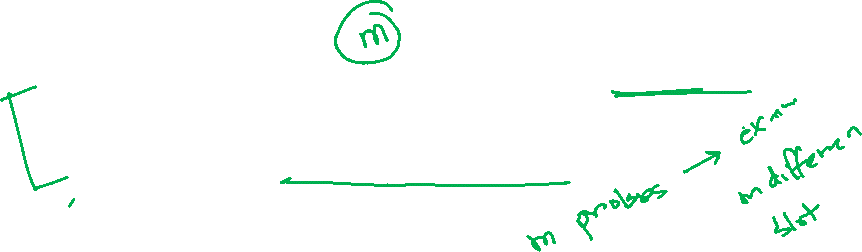 m
m probes → exam
m differen
slot